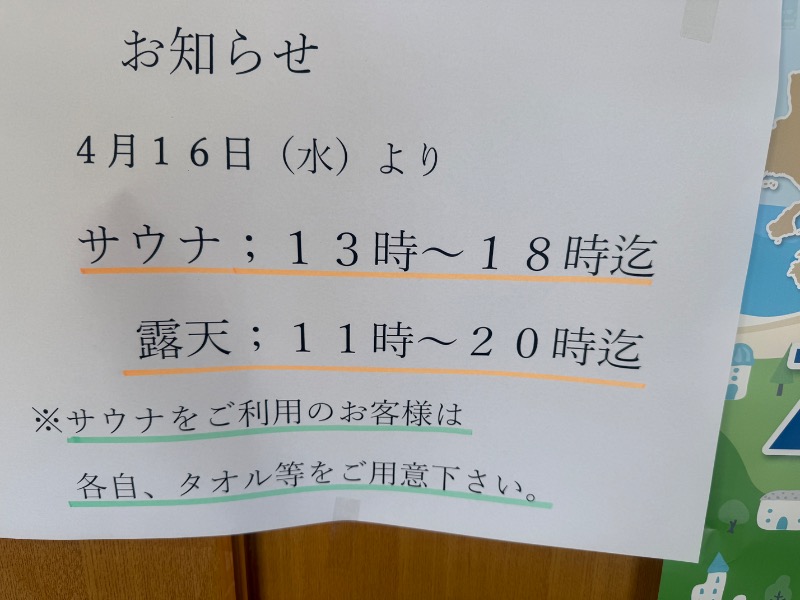 お知らせ
４月１６日（水）より
サウナ；１３時～１８時迄
露天；１１時～２０時迄
※サウナをご利用のお客様は
各自、タオル等をご用意下さい。